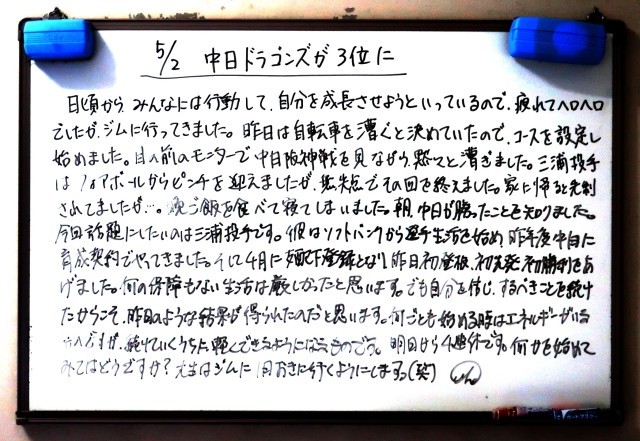 5/2 中日ドラゴンズが3位に
日頃からみんなには行動して、自分を成長させようといっているので、疲れてヘロヘロ
でしたが、ジムに行ってきました。昨日は自転車を漕ぐと決めていたので、コースを設定し
始めました。目の前のモニターで中日阪神戦を見ながら、黙々と漕ぎました。三浦投手
はフォアボールからピンチを迎えましたが、無失点でその回を終えました。家に帰ると先制
されてましたが…。晩ご飯を食べて寝てしまいました。朝、中日が勝ったことを知りました。
今回話題にしたいのは三浦投手です。彼はソフトバンクから選手生活を始め、昨年度中日に
育成契約でやってきました。そして4月に支配下登録となり、昨日初登板、初先発、初勝利をあ
げました。何の保障もない生活は厳しかったと思います。でも自分を信じ、するべきことを続け
たからこそ、昨日のような結果が得られたのだと思います。何ごとも始める時はエネルギーがいる
ですが、続けていくうちに軽くできるようになるものです。明日から4連休です。何かを始めて
みてはどうですか?先生はジムに1日おきに行くようにします。(笑)